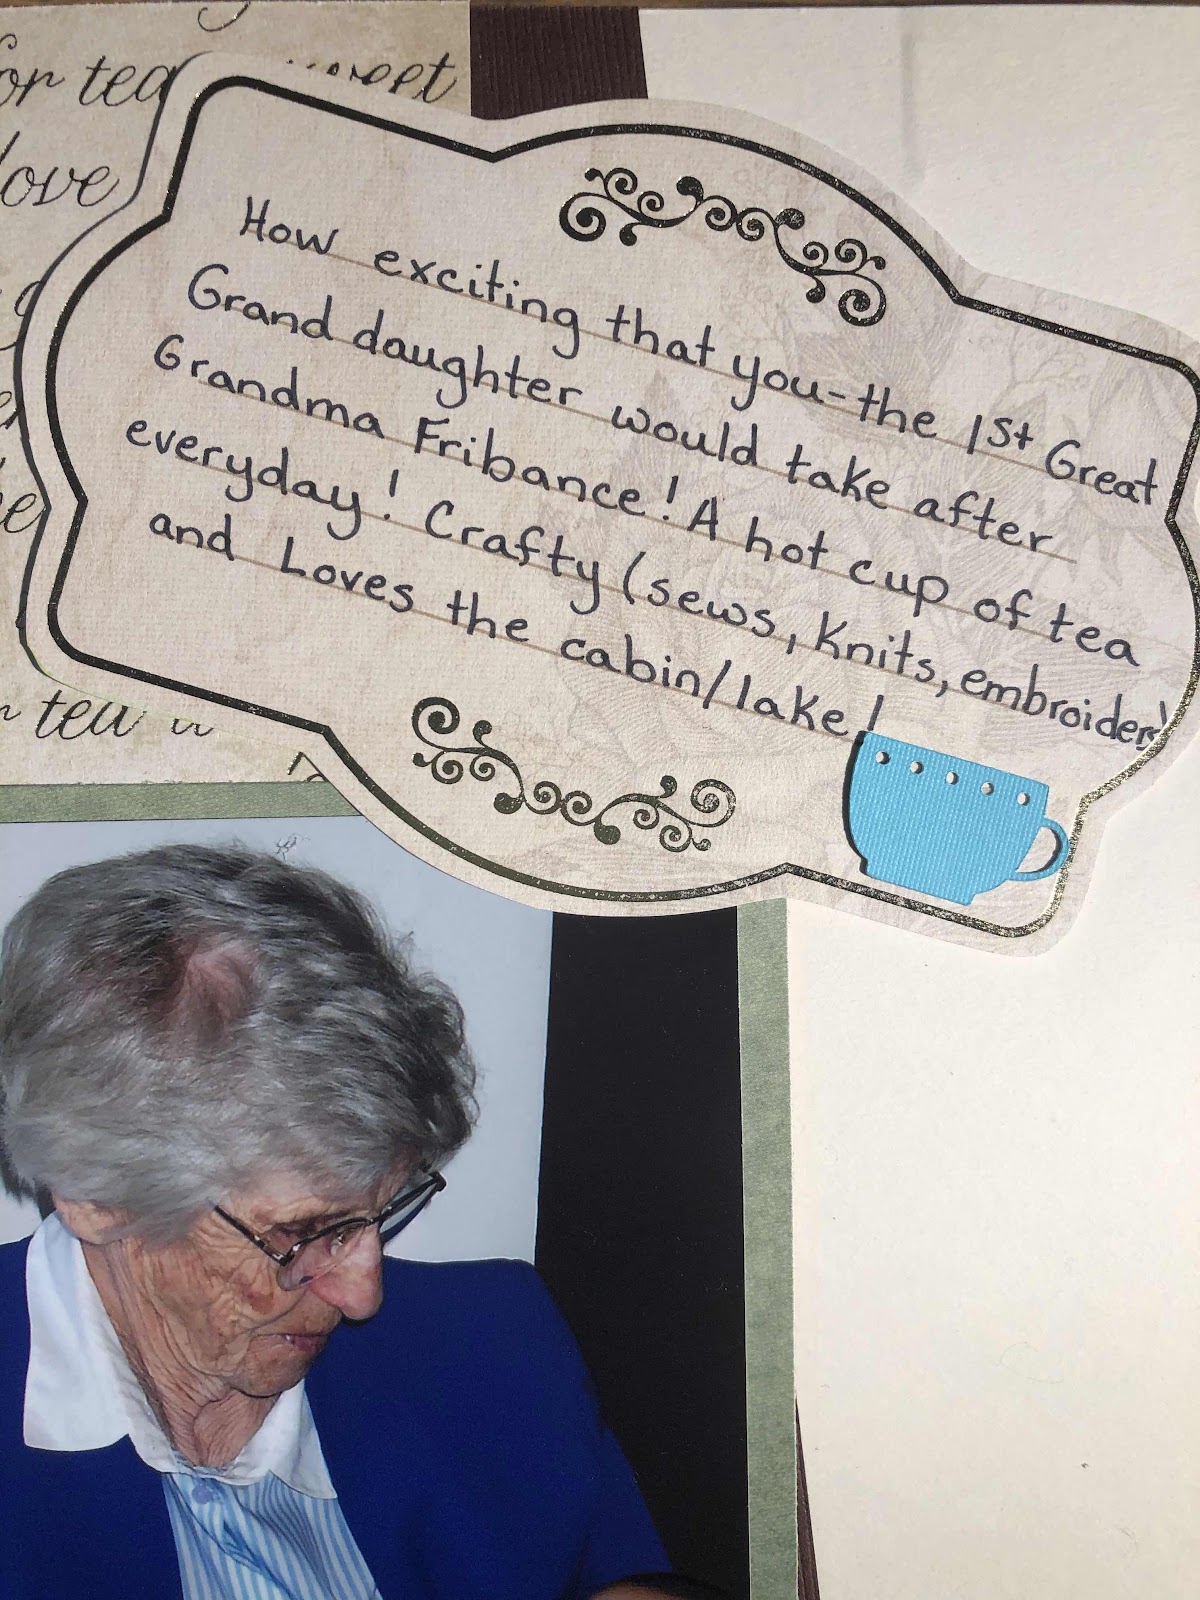 for tea sweet
love
How exciting that you-the 1st Great
Grand daughter would take after
Grandma Fribance! A hot cup of tea
everyday! Crafty (sews, knits, embroiders)
and Loves the cabin/lake!
tea